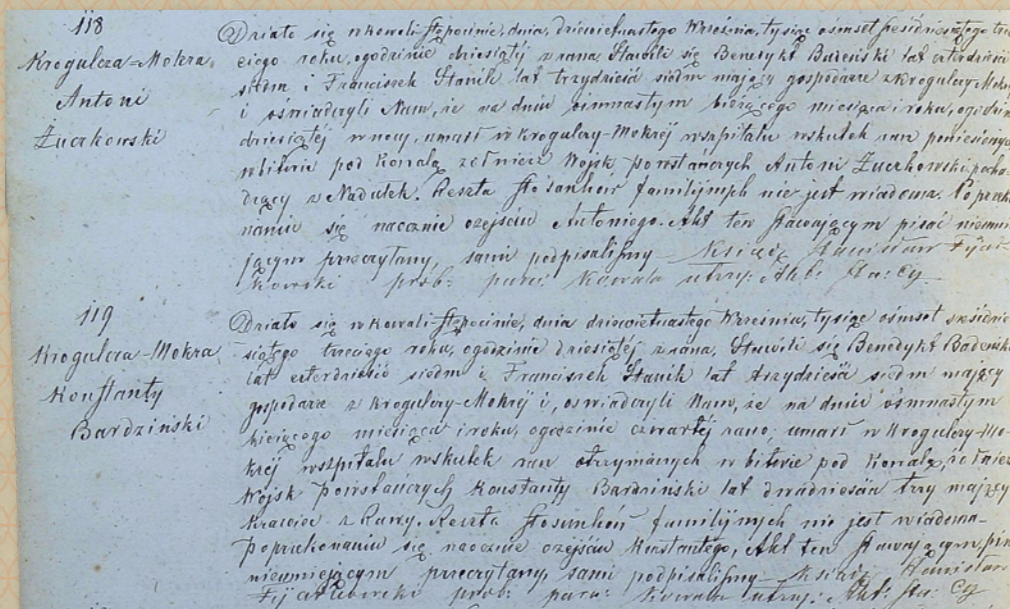 118
Krogulcza-Mokra
Antoni
Żuczkowski
Działo się w Kowali-Stępocinie, dnia, dziewiętnastego Września, tysiąc ośmset sześdziesiątego trze
ciego roku, o godzinie dziesiątéj z rana, Stawili się Benedykt Badeński lat czterdzieści
siedm i Franciszek Stanik lat trzydzieści siedm mający gospodarze z Krogulczy-Mokréj
i oświadczyli Nam, że na dniu ośmnastym bieżącego miesiąca i roku, o godzinie
dziesiątéj w nocy, umarł w Krogulczy-Mokréj w szpitalu wskutek ran poniesionych
w bitwie pod Kowalą żołnierz Wojsk powstańczych Antoni Żuczkowski pocho-
dzący z Nadułek. Reszta stosunków familijnych nie jest wiadoma. Po przeko
naniu się naocznie o zejściu Antoniego. Akt ten stawającym pisać nieumie
jącym przeczytany, sami podpisaliśmy – Ksiądz Stanisław Fijał
kowski prob: para: Kowala utrzy: Akt: Sta: Cy
119
Krogulcza-Mokra
Konstanty
Bardziński
Działo się w Kowali-Stępocinie, dnia dziewiętnastego Września, tysiąc ośmset sześdzie
siątego trzeciego roku, o godzinie dziesiątéj z rana, Stawili się Benedykt Badeński
lat czterdzieści siedm i Franciszek Stanik lat trzydzieści siedm mający
gospodarze z Krogulczy-Mokréj i, oświadczyli Nam, że na dniu ośmnastym
bieżącego miesiąca i roku, o godzinie czwartéj rano, umarł w Krogulczy-Mo-
kréj w szpitalu wskutek ran otrzymanych w bitwie pod Kowalą, żołnierz
Wojsk powstańczych Konstanty Bardziński lat dwadzieścia trzy mający
Krawiec z Rawy. Reszta stosunków familijnych nie jest wiadoma –
Po przekonaniu się naocznie o zejściu Konstantego, Akt ten stawającym, pisać
nieumiejącym przeczytany, sami podpisaliśmy – Ksiądz Stanisław
Fijałkowski prob: para: Kowala utrzy: Akt: Sta: Cy